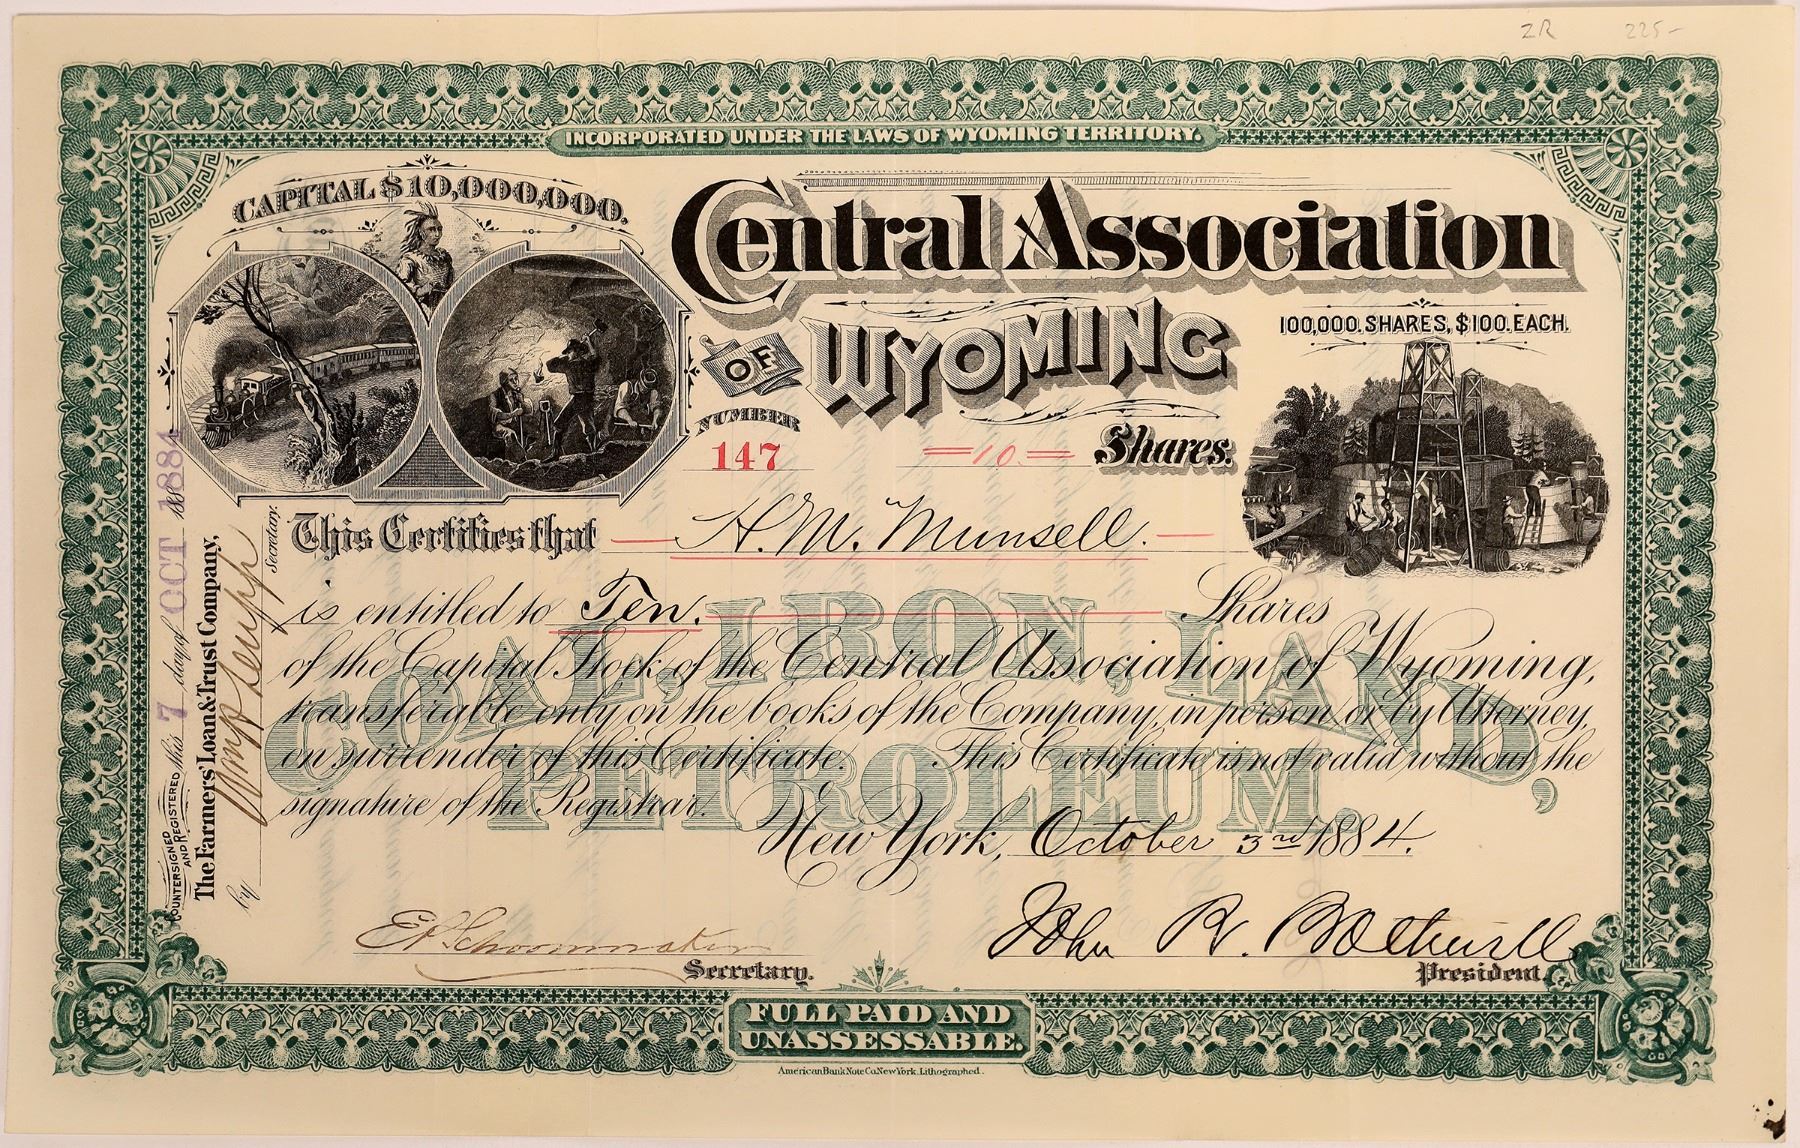 ZR 225-
INCORPORATED UNDER THE LAWS OF WYOMING TERRITORY.
CAPITAL $10,000,000.
Central Association
OF WYOMING
100,000. SHARES, $100. EACH.
NUMBER
147
=10= Shares.
This Certifies that H. M. Munsell.
is entitled to Ten. Shares
of the Capital Stock of the Central Association of Wyoming,
transferable only on the books of the Company, in person or by Attorney,
on surrender of this Certificate. This Certificate is not valid without the
signature of the Registrar.
COAL, IRON, LAND,
PETROLEUM.
New York, October 3rd 1884.
E. Schoonmaker
Secretary.
John R. Bothwell
President.
COUNTERSIGNED AND REGISTERED this 7 day of OCT 1884 188
The Farmers' Loan & Trust Company,
by Secretary.
FULL PAID AND
UNASSESSABLE.
American Bank Note Co. New York. Lithographed.